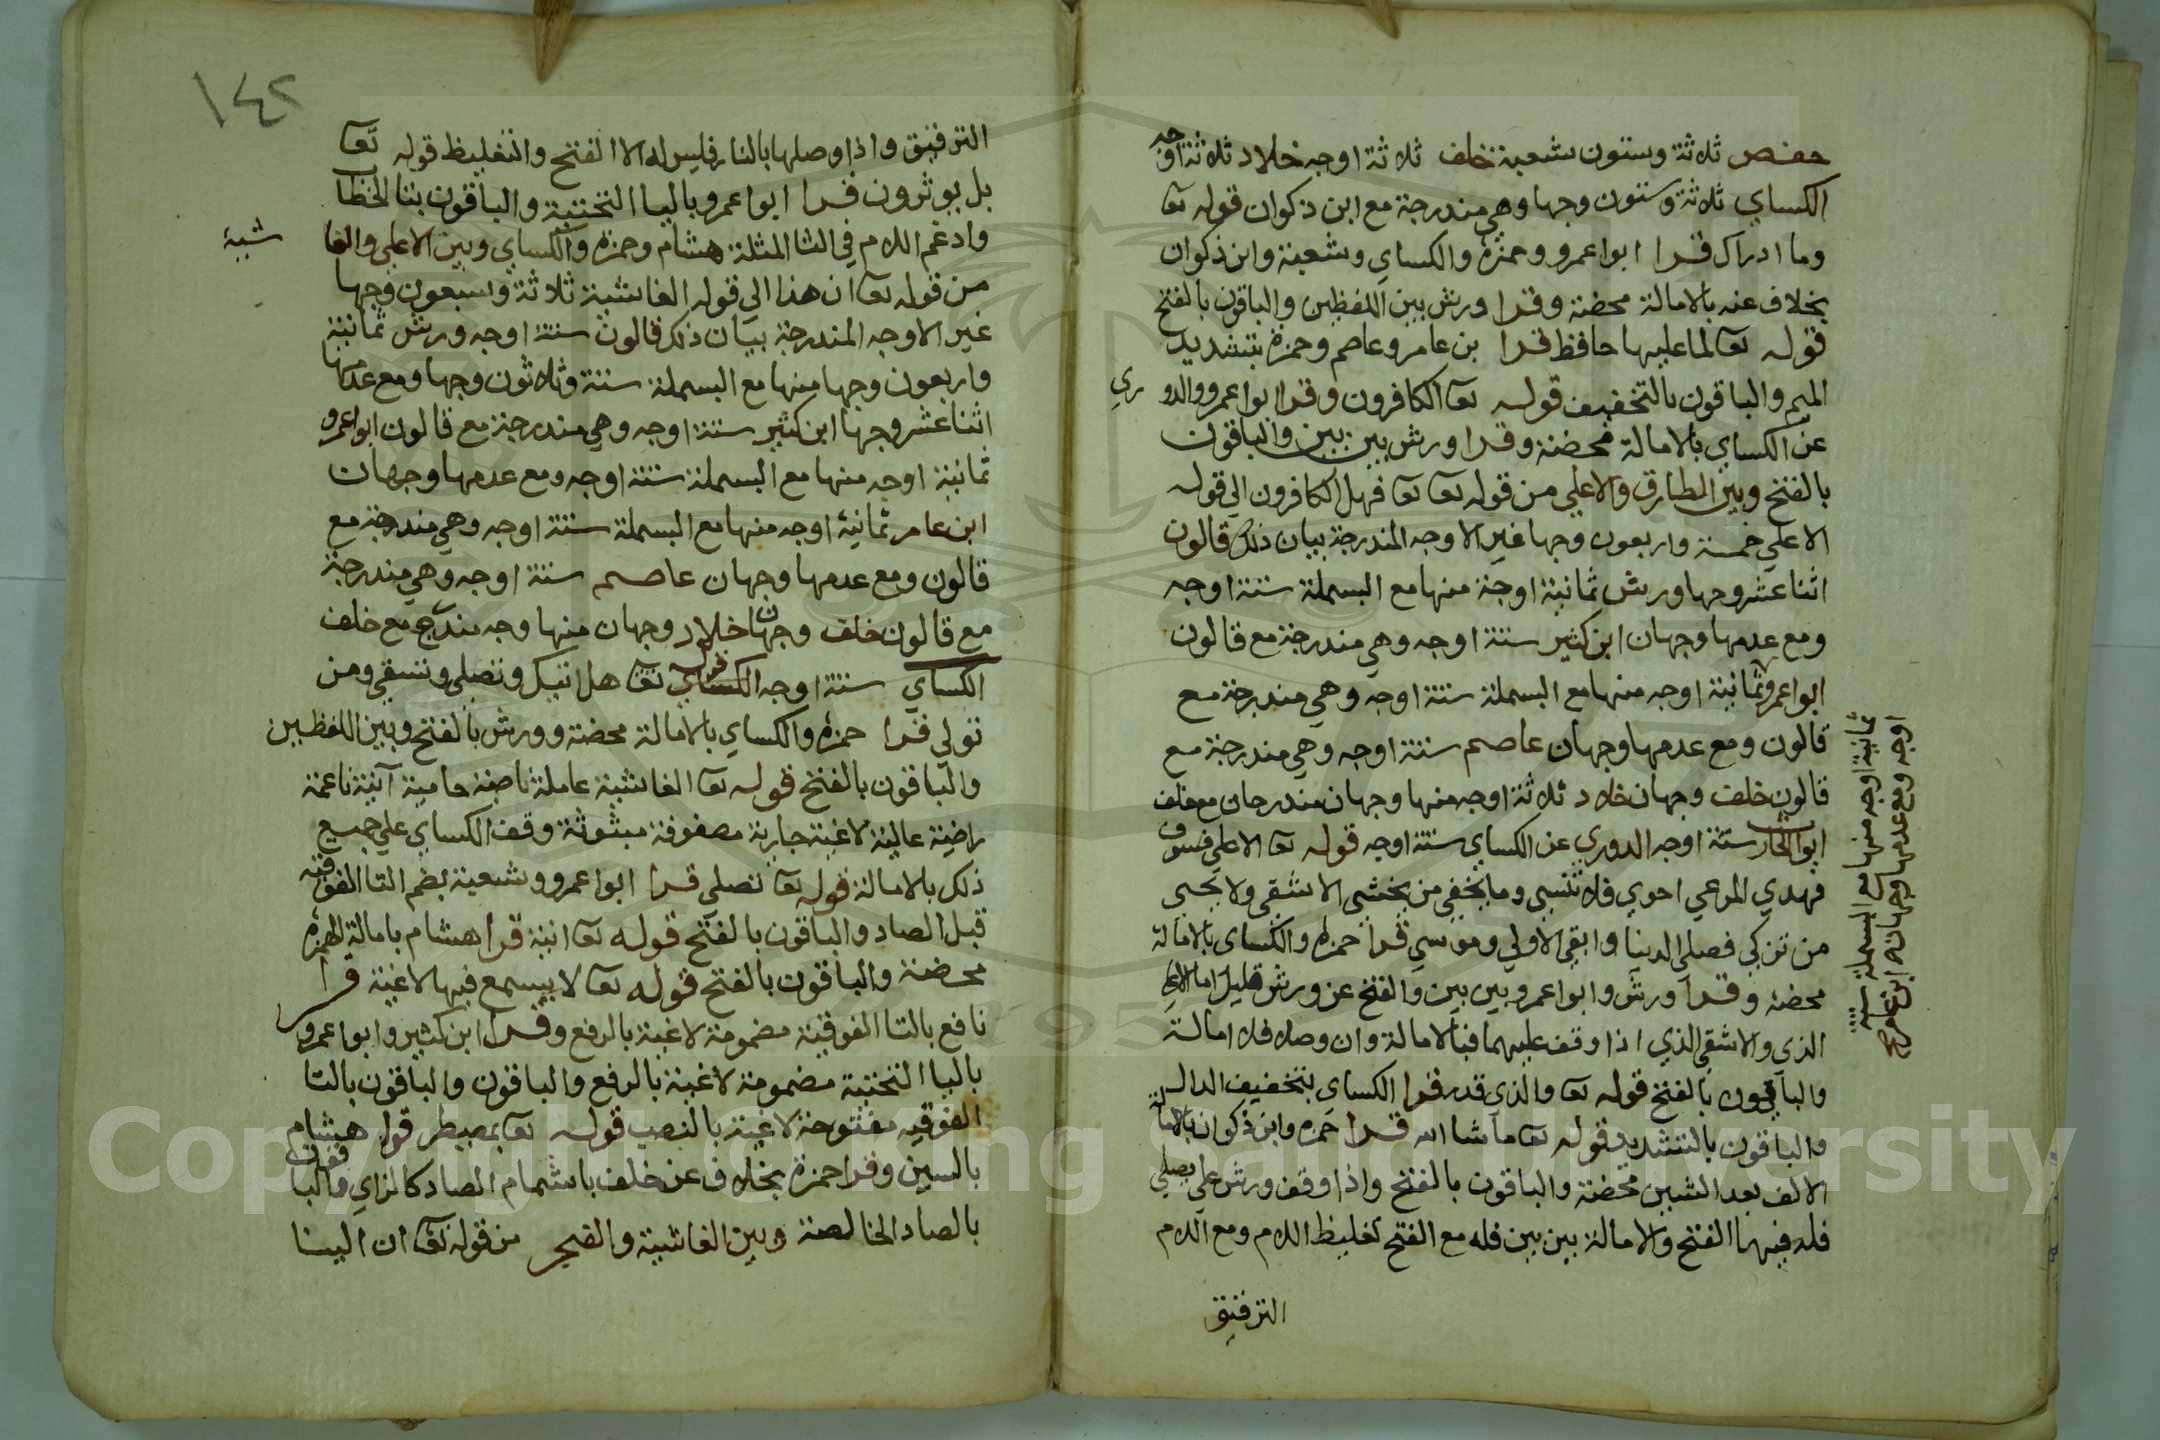 حفص ثلاثة وستون شعبة خلف ثلاثة اوجه خلاد ثلاثة اوجه
الكساي ثلاثة وستون وجها وهي مندرجة مع ابن ذكوان قوله تعا
وما ادراك قرا ابو اعمرو وحمزة والكساي وشعبة وابن ذكوان
بخلاف عنه بالامالة محضة وقرا ورش بين اللفظين والباقون بالفتح
قوله تعا لما عليها حافظ قرا بن عامر وعاصم وحمزة بتشديد
الميم والباقون بالتخفيف قوله تعا الكافرون وقرا ابو اعمرو والدو
ري
عن الكساي بالامالة محضة وقرا ورش بين بين والباقون
بالفتح وبين الطارق والاعلي من قوله تعا تعا فمهل الكافرون الي قوله
الاعلي خمسة واربعون وجها غير الاوجه المندرجة بيان ذلك قالون
اثنا عشر وجها ورش ثمانية اوجة منها مع البسملة ستة اوجه
ومع عدمها وجهان ابن كثير ستة اوجه وهي مندرجة مع قالون
ابو اعمرو ثمانية اوجه منها مع البسملة ستة اوجه وهي مندرجة مع
قالون ومع عدمها وجهان عاصم ستة اوجه وهي مندرجة مع
قالون خلف وجهان خلاد ثلاثة اوجه منها وجهان مندرجان مع خلف
ابو الحارث ستة اوجه الدوري عن الكساي ستة اوجه قوله تعا الاعلي فسوي
فهدي المرعي احوي فلا تنسي وما يخفي من يخشي الاشقي ولا يحيى
من تزكي فصلي الدنيا وابقي الاولي وموسي قرا حمزة والكساي بالامالة
محضة وقرا ورش وابو اعمرو بين بين والفتح عن ورش قليل اما الاعلي
الذي والاشقي الذي اذا وقف عليهما فبالامالة وان وصل فلا امالة
والباقون بالفتح قوله تعا والذي قدر قرا الكساي بتخفيف الدال
والباقون بالتشديد قوله تعا ما شا الله قرا حمزه وابن ذكوان بالامالة
الالف بعد الشين محضة والباقون بالفتح واذا وقف ورش علي يصلي
فله فيها الفتح والامالة بين بين فله مع الفتح تغليظ اللام ومع اللام
الترقيق
ثمانية اوجه منها مع البسملة ستة
اوجه ومع عدمها وجهان ابن عامر
١٤٢
الترقيق واذا وصلها بالنار فليس له الا الفتح والتغليظ قوله تعا
بل يوثرون قرا ابو اعمرو باليا التحتية والباقون بتا الخطا
وادغم اللام في الثا المثلثة هشام وحمزة والكساي وبين الاعلي والغا
شية
من قوله تعا ان هذا الي قوله الغاشية ثلاثة وسبعون وجها
غير الاوجه المندرجة بيان ذلك قالون ستة اوجه ورش ثمانية
واربعون وجها منها مع البسملة ستة وثلاثون وجها ومع عدمها
اثنا عشر وجها ابن كثير ستة اوجه وهي مندرجة مع قالون ابو اعمرو
ثمانية اوجه منها مع البسملة ستة اوجه ومع عدمها وجهان
ابن عامر ثمانية اوجه منها مع البسملة ستة اوجه وهي مندرجة مع
قالون ومع عدمها وجهان عاصم ستة اوجه وهي مندرجة
مع قالون خلف وجهان خلاد وجهان منها وجه مندرج مع خلف
الكساي ستة اوجه الكساي قوله تعا هل اتيك وتصلي وتسقي ومن
تولي قرا حمزه والكساي بالامالة محضة وورش بالفتح وبين اللفظين
والباقون بالفتح قوله تعا الغاشية عاملة ناصبة حامية آنية ناعمة
راضية عالية لاغية جارية مصفوفة مبثوثة وقف الكساي علي جميع
ذلك بالامالة قوله تعا تصلي قرا ابو اعمرو وشعبة بضم التا الفوقية
قبل الصاد والباقون بالفتح قوله تعا انية قرا هشام بامالة الهمزة
محضة والباقون بالفتح قوله تعا لا يسمع فيها لاغية قرا
نافع بالتا الفوقية مضمومة لاغية بالرفع وقرا ابن كثير وابو اعمرو
باليا التحتية مضمومة لاغية بالرفع والباقون والباقون بالتا
الفوقيه مفتوحة لاغية بالنصب قوله تعا بمصيطر قرا هشام
بالسين وقرا حمزة بخلاف عن خلف باشمام الصاد كالزاي والباقون
بالصاد الخالصة وبين الغاشية والفجر من قوله تعا ان الينا
Copyright © King Saud University